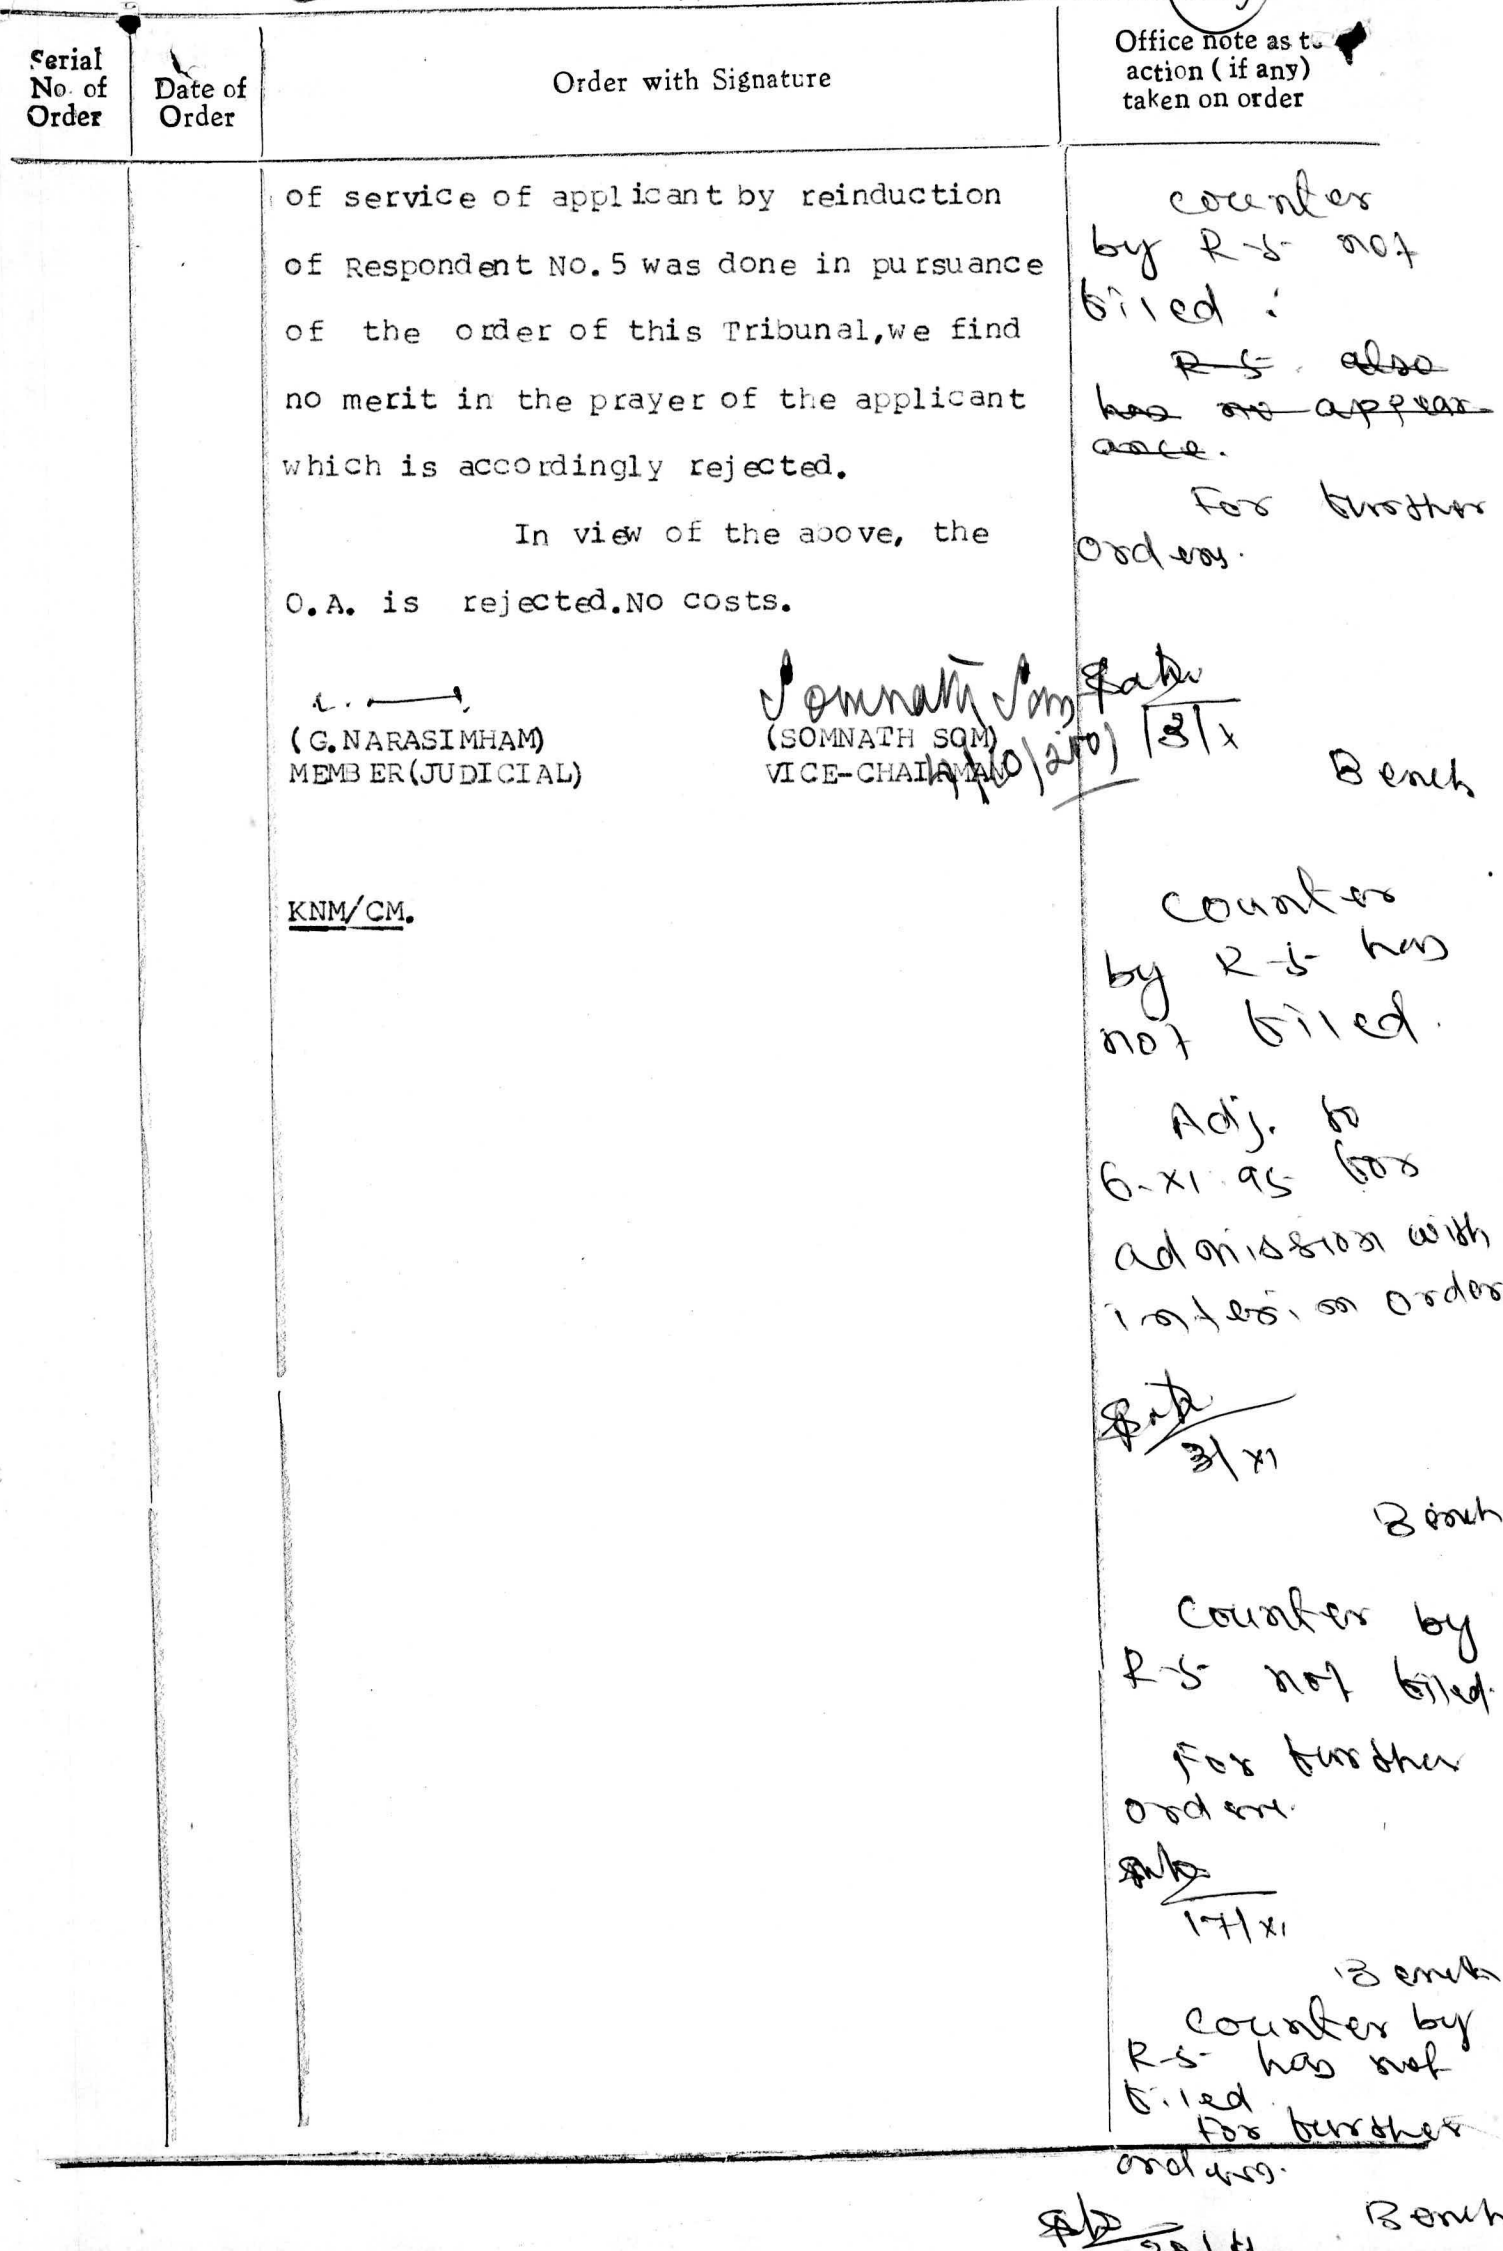 Serial
No. of
Order
Date of
Order
Order with Signature
Office note as to
action ( if any)
taken on order
of service of applicant by reinduction
of Respondent No.5 was done in pursuance
of the order of this Tribunal,we find
no merit in the prayer of the applicant
which is accordingly rejected.
In view of the above, the
O.A. is rejected.No costs.
Somnath Som
(G.NARASIMHAM)
MEMBER(JUDICIAL)
(SOMNATH SOM)
VICE-CHAIRMAN
KNM/CM.
counter
by R-5 not
filed.
R-5 also
has no appear-
ance.
For further
orders.
13/x
Bench
Counter
by R-5 has
not filed.
Adj. to
6-XI-95 for
admission with
interim order
3/XI
Bench
Counter by
R-5 not filed.
For further
orders.
17/XI
Bench
Counter by
R-5 has not
filed.
For further
orders.
Bench